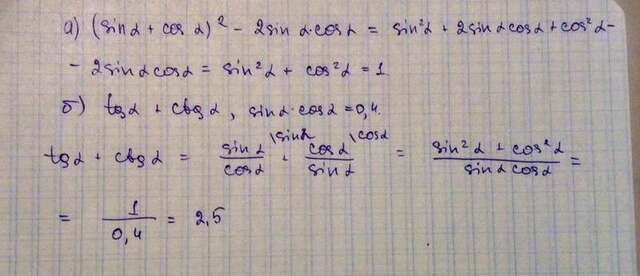 а) (sin α + cos α)² - 2sin α·cos α = sin²α + 2sin α cos α + cos²α -
- 2sin α cos α = sin²α + cos²α = 1
б) tg α + ctg α, sin α·cos α = 0,4.
tg α + ctg α = sin α \sin α / cos α + cos α \cos α / sin α = sin²α + cos²α / sin α cos α =
= 1 / 0,4 = 2,5